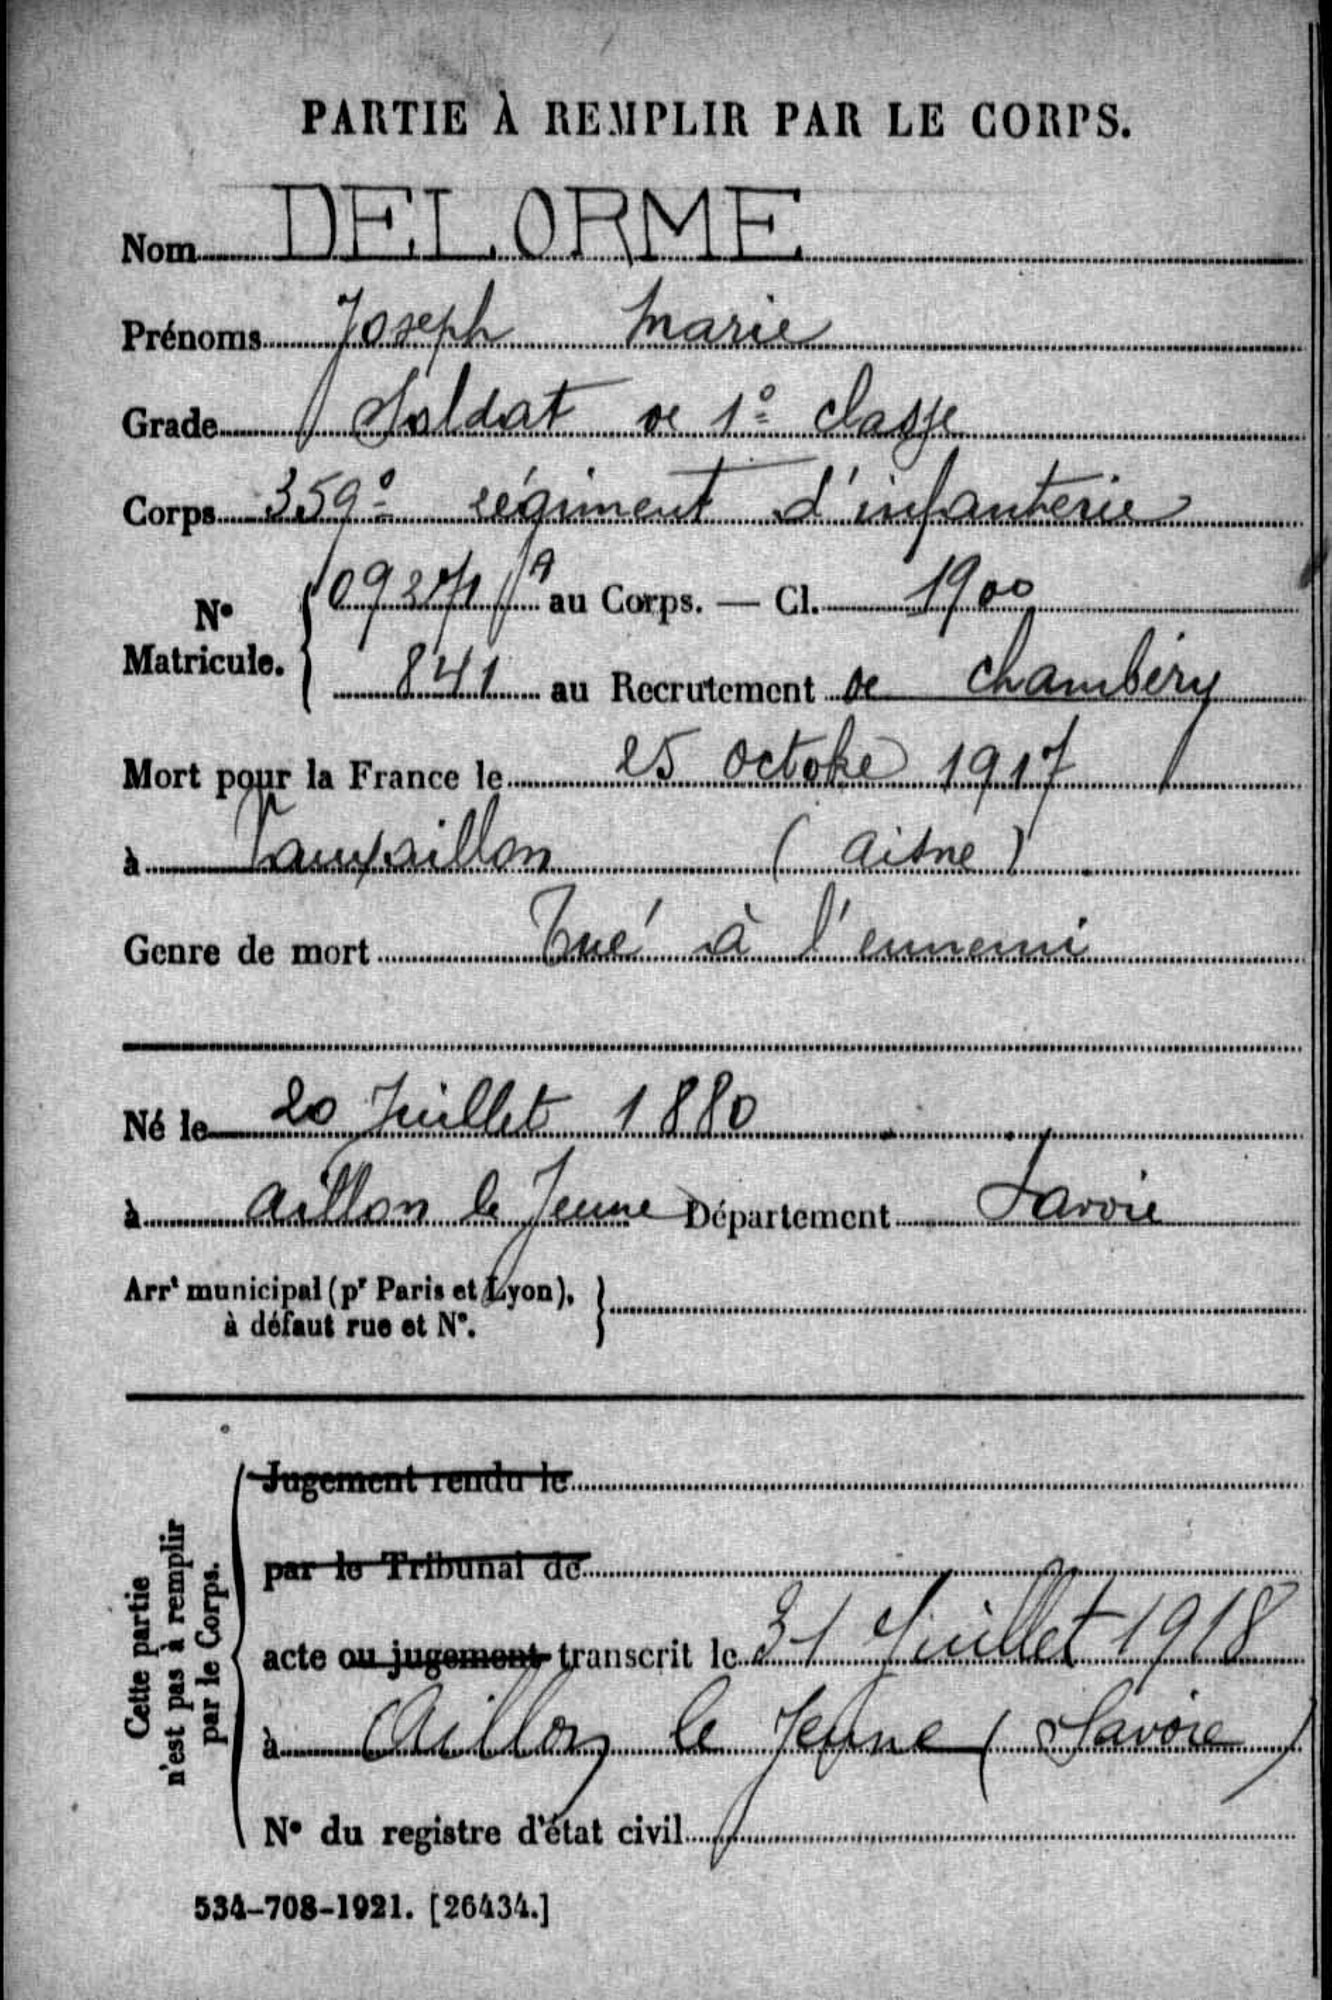 PARTIE À REMPLIR PAR LE CORPS.
Nom DELORME
Prénoms Joseph Marie
Grade Soldat de 1e classe
Corps 359e régiment d'infanterie
N° Matricule.
au Corps. — Cl. 1900
841 au Recrutement de Chambéry
Mort pour la France le 25 octobre 1917
à Vauxaillon (Aisne)
Genre de mort Tué à l'ennemi
Né le 20 Juillet 1880
à Aillon le Jeune Département Savoie
Arrt municipal (pr Paris et Lyon),
à défaut rue et N°.
Cette partie
n'est pas à remplir
par le Corps.
Jugement rendu le
par le Tribunal de
acte ou jugement transcrit le 31 Juillet 1918
à Aillon le Jeune (Savoie)
N° du registre d'état civil
534-708-1921. [26434.]